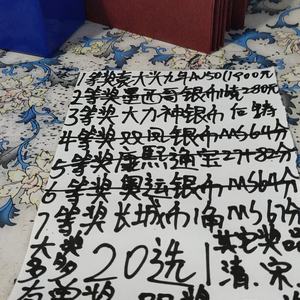 1等奖袁大头九年AU50(1900元
2等奖墨西哥银币1888280元
3等奖大力神银币
4等奖双凤银币MS64分
5等奖康熙通宝27+82分
6等奖奥运银币MS64分
7等奖长城币1角MS67分
大奖 其它奖品
多多 20选1 清.宋.